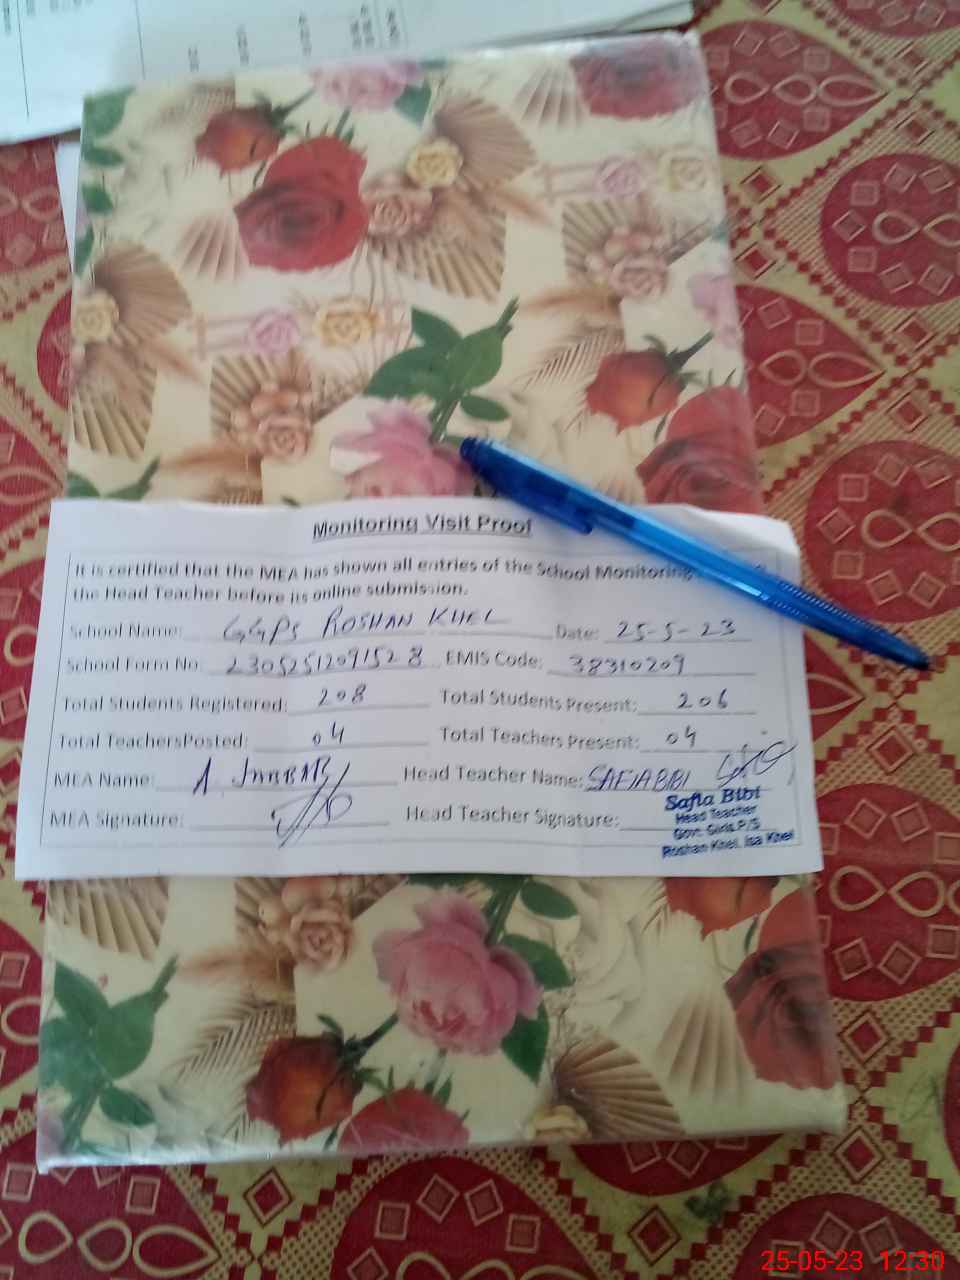 Monitoring Visit Proof
It is certified that the MEA has shown all entries of the School Monitoring
the Head Teacher before its online submission.
School Name: GGPS ROSHAN KHEL Date: 25-5-23
School Form No: 23052512091528 EMIS Code: 38310209
Total Students Registered: 208 Total Students Present: 206
Total TeachersPosted: 04 Total Teachers Present: 04
MEA Name: A. JABBAR Head Teacher Name: SAFIA BIBI
MEA Signature: Head Teacher Signature:
Safia Bibi
Head Teacher
Govt. Girls P/S
Roshan Khel, Isa Khel
25-05-23 12:30